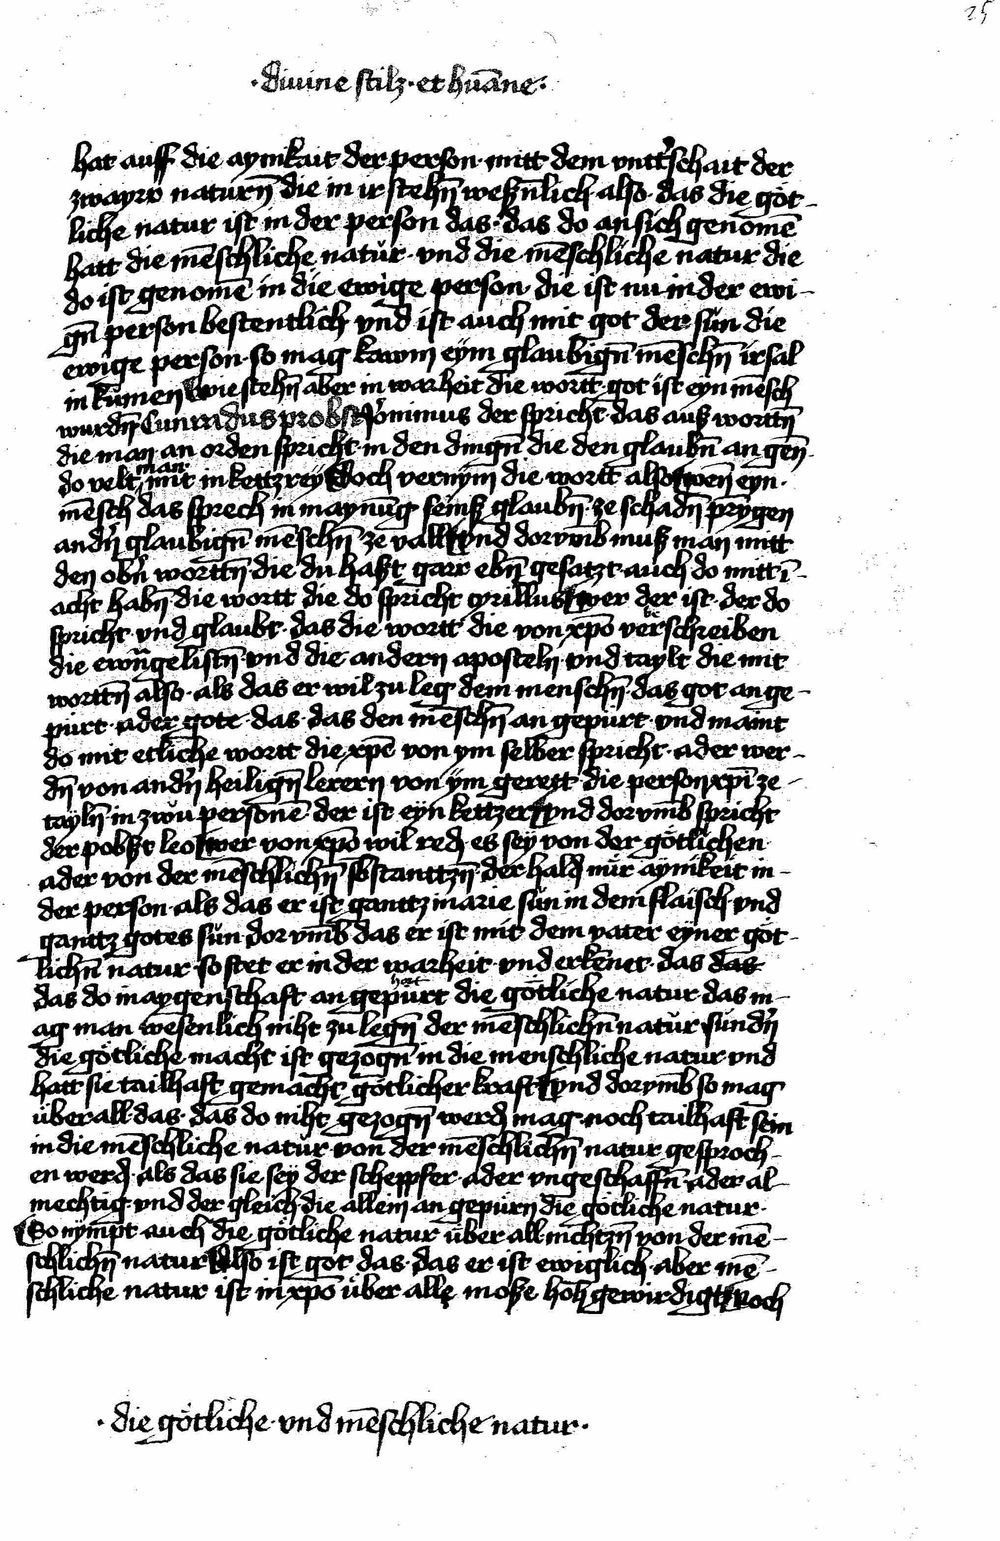 25
·diuine scilz·et hūāne·
hat auff die aynikait der person·mitt dem vntt'schait der
zwayer naturn̄ die in ir stehn̄ weßn̄lich also·das die göt-
liche natur ist in der person das·das do an sich genomē
hatt die mēschliche natůr·vnd die mēschliche natur die
do ist genomē in die ewige person·die ist nu in der ewi-
gn̄ person bestentlich vnd ist auch mit got der sün die
ewige person·so mag kawm eym glaubign̄ mēschn̄ irsal
in kūmen wie stehn̄ aber in warheit die wortt·got ist eyn mēsch
wurdn̄ Cunradus probst Jeronimus der spricht·das auß worttn̄
die man an orden spricht·in den dingn̄ die den glaubn̄ an gen̄
do velt man mit in kettzrey Doch vernȳm die wortt also wen̄ eyn·
mēsch das sprech in maynūg seinß glaubn̄·ze schadn̄ prȳgen
andn̄ glaubign̄ mēschn̄ ze vall vnd dorvmb muß man mitt
den obn̄ worttn̄ die du haßt garr ebn̄ gesatzt·auch do mitt ī-
acht habn̄ die wortt die do spricht cyrillus wer der ist·der do
spricht·vnd glaubt·das die wortt die von xp̄o ver be schreiben
die ewn̄gelistn̄ vnd die andern aposteln vnd taylt die mit
worttn̄ also·als das er wil zu leg dem menschn̄·das got an ge-
pürt·ader gote·das·das den mēschn̄ an gepürt·vnd maint
do mit etliche wortt die xpē von ym selber spricht·ader wer-
dn̄ von andn̄ heilign̄ lerern von ym gerett die person xpī ze-
tayln̄ in zwu personē·der ist eyn kettzer vnd dorvmb spricht
der pobßt leo wer von xp̄o wil red es sey von der götlichen
ader von der mēschlichn̄ sbstanttzn̄·der hald nür aynikeit in-
der person·als das er ist ganttz marie sün in dem flaisch vnd
ganttz gotes sün·dor vmb das er ist mit dem vater eyner göt-
lichn̄ natur·so stet er in der warheit·vnd erkēnet·das das
das do in aygenschaft an gepürt hat die götliche natur·das m-
ag man wesenlich niht zu legn̄ der mēschlichn̄ natür·sundn̄
die götliche macht ist gezogn̄ in die menschliche natur vnd
hatt sie tailhaft gemacht götlicher kraft vnd dorvmb so mag
über all·das·das do niht gezogn̄ werd mag·noch tailhaft sein
in die mēschliche natür·von der mēschlichn̄ natur gesproch-
en werd·als das sie sey der scheppfer·ader vngeschaffn̄·ader al-
mechtig·vnd der gleich·die allein an gepürn die götliche natur·
So nympt auch die götliche natur über all·nichtzn̄ von der mē-
schlichn̄ natur Also ist got das·das er ist ewiglich·aber mē-
schliche natur ist in xp̄o über alle moße hoh gewirdigt Noch
·die götliche·vnd mēschliche natur·